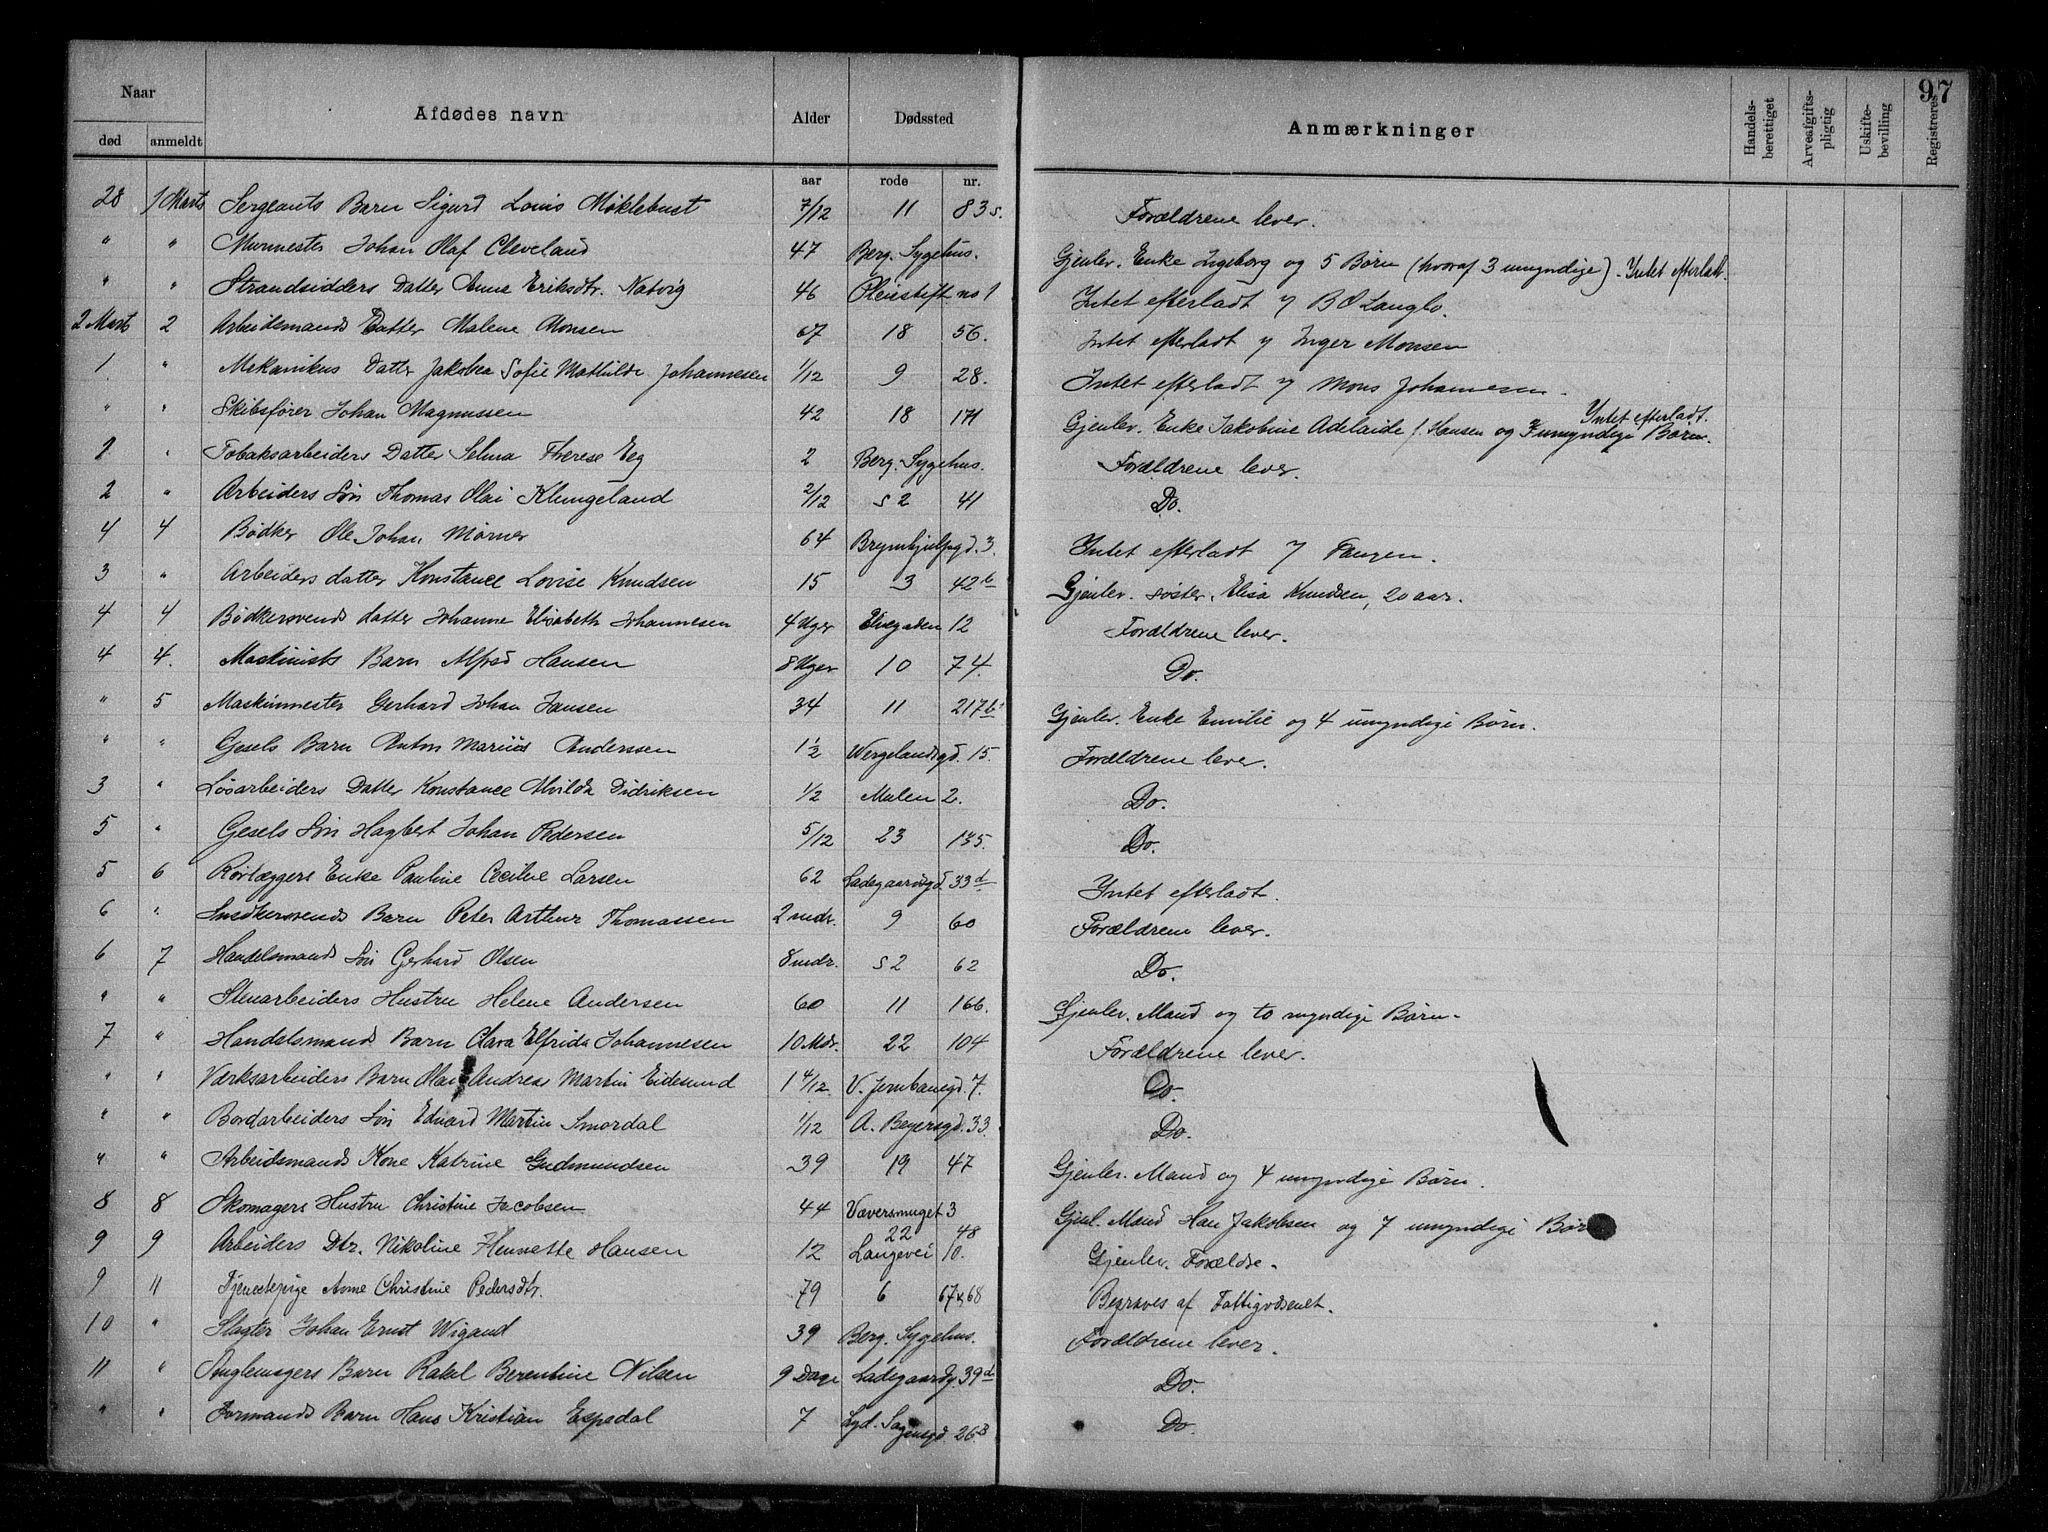 97
Naar
Afdødes navn
Alder
Dødssted
Anmærkninger
Handels-berettiget
Arveafgifts-pligtig
Uskifte-bevilling
Registreret
død anmeldt
aar rode nr.
28 1 Marts Sergeants Barn Sigurd Louis Møklebust 7/12 11 83 s. Forældrene lever.
" " Murmester Johan Olaf Cleveland 47 Berg. Sygehus. Gjenlev. Enke Ingeborg og 5 Børn (hvoraf 3 umyndige). Intet efterladt.
" " Strandsidders Datter Anna Eriksdtr. Natvig 46 Pleiestift. no 1 Intet efterladt
2 Marts 2 Arbeidsmands Datter Malene Monsen 67 18 56. Intet efterladt Inger Monsen
1 " Mekanikus Datter Jakobea Sofie Mathilde Johannesen 1/12 9 28. Intet efterladt Mons Johannesen.
" " Skibsfører Johan Magnussen 42 18 171 Gjenlev. Enke Jakobine Adelaide f. Hansen og umyndige Børn. Intet efterladt.
2 " Tobaksarbeiders Datter Selma Therese Eeg 2 Berg. Sygehus. Forældrene lever.
2 " Arbeiders Søn Thomas Olai Klungeland 2/12 s 2 41 Do.
4 4 Bødker Ole Johan Mørner 64 3. Intet efterladt
3 " Arbeiders datter Konstance Lovise Knudsen 15 3 42 b Gjenlev. søster, Elisa Knudsen, 20 aar.
4 4 Bødkersvends datter Johanne Elisabeth Johannesen 4 Uger Elvegaden 12 Forældrene lever.
4 4. Maskinists Barn Alfred Hansen 8 Uger 10 74. Do.
" 5 Maskinmester Gerhard Johan Jansen 34 11 217 b. Gjenlev. Enke Emilie og 4 umyndige Børn.
" " Gesels Barn Anton Marius Anderssen 1 1/2 Wergelandsgd. 15. Forældrene lever.
3 " Løsarbeiders Datter Konstance Alvilda Didriksen 1/2 Malen 2. Do.
5 " Gesels Søn Hagbert Johan Pedersen 5/12 23 135. Do.
5 6 Rørlæggers Enke Pauline Cecilie Larsen 62 Ladegaardsgd. 33 d Intet efterladt.
6 " Snedkersvends Barn Peter Arthur Thomassen 2 mdr. 9 60 Forældrene lever.
6 7 Handelsmands Søn Gerhard Olsen 8 mdr. s 2 62 Do.
" " Stenarbeiders Hustru Helene Andersen 60 11 166. Gjenlev. Mand og to myndige Børn.
7 " Handelsmands Barn Clara Elfrida Johannesen 10 Mdr. 22 104 Forældrene lever.
" " Værksarbeiders Barn Olai Andreas Martin Eidesund 1 4/12 V. Jernbanegd. 7. Do.
" " Bordarbeiders Søn Edvard Martin Smørdal 1/12 A. Beyersgd. 33 Do.
" " Arbeidsmands Kone Katrine Gudmundsen 39 19 47 Gjenlev. Mand og 4 umyndige Børn.
8 8 Skomagers Hustru Christine Jacobsen 44 Væversmuget 3 Gjenl. Mand Jakobsen og 7 umyndige Børn
9 9 Arbeiders Dtr. Nikoline Henriette Hansen 12 22 48 Langevei 10. Gjenlev. Forældre.
9 11 Tjenestepige Anne Christine Pedersdtr. 79 6 67 & 68 Begraves af Fattigvæsenet.
10 " Slagter Johan Ernst Wigand 39 Berg. Sygehus. Forældrene lever.
11 " Barn Rakel Berentine Nilsen 9 Dage Ladegaardsg. 39 d Do.
" " Formands Barn Hans Kristian Espedal 7 Lyd. Sagensgd. 26 B Do.